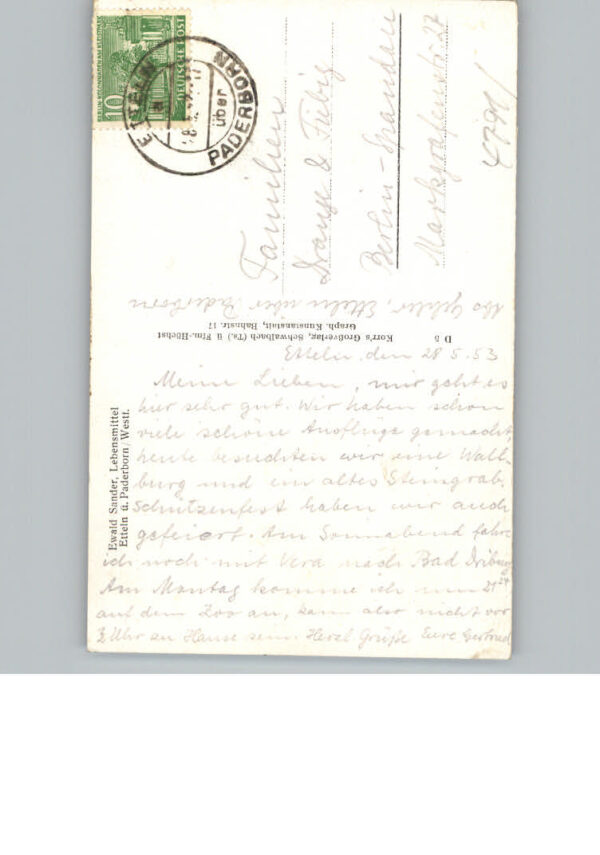 10
DEUTSCHE POST
ETTELN
a
über
PADERBORN
Familien
Drange & Fiebig
Berlin-Spandau
Markgrafenstr. 27
Etteln über Paderborn
D 5 Korr's Großverlag, Schwalbach (Ts.) ü Ffm.-Höchst
Graph. Kunstanstalt, Bahnstr. 17
Ewald Sander, Lebensmittel
Etteln ü. Paderborn/Westf.
Etteln, den 28.5.53
Meine Lieben, mir geht es
hier sehr gut. Wir haben schon
viele schöne Ausflüge gemacht,
heute besuchten wir eine Wall-
burg und ein altes Steingrab.
Schützenfest haben wir auch
gefeiert. Am Sonnabend fahre
ich noch mit Vera nach Bad Driburg
Am Montag komme ich um 21
auf dem Zoo an, kann also nicht vor
Uhr zu Hause sein. Herzl. Grüße Eure Gertrud